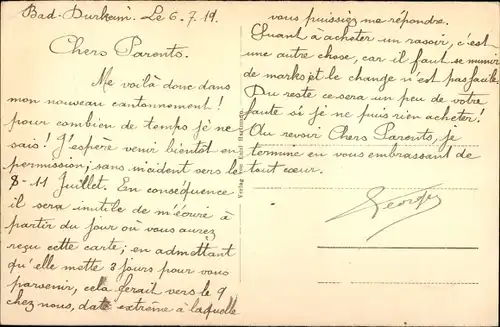 Bad-Durkheim. Le 6.7.19.
Chers Parents.
Me voilà donc dans
mon nouveau cantonnement!
pour combien de temps je ne
sais! J'espère venir bientôt en
permission; sans incident vers le
8-11 Juillet. En conséquence
il sera inutile de m'écrire à
partir du jour où vous aurez
reçu cette carte; en admettant
qu'elle mette 3 jours pour vous
parvenir, cela ferait vers le 9
chez nous, date extrême à laquelle
vous puissiez me répondre.
Quant à acheter un rasoir, c'est
une autre chose, car il faut se munir
de marks et le change n'est pas facile.
Du reste ce sera un peu de votre
faute si je ne puis rien acheter!
Au revoir Chers Parents, je
termine en vous embrassant de
tout cœur.
Georges
Verlag von Emil